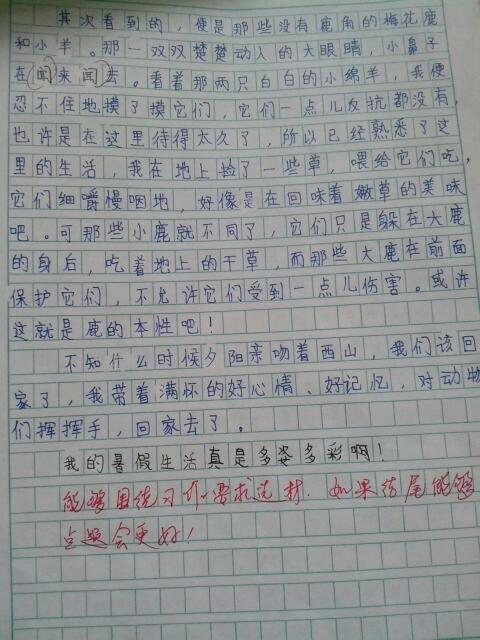 其次看到的，便是那些没有鹿角的梅花鹿
和小羊。那一双双楚楚动人的大眼睛，小鼻子
在闻来闻去。看着那两只白白的小绵羊，我便
忍不住地摸了摸它们，它们一点儿反抗都没有，
也许是在这里待得太久了，所以已经熟悉了这
里的生活，我在地上捡了一些草，喂给它们吃，
它们细嚼慢咽地，好像是在回味着嫩草的美味
吧。可那些小鹿就不同了，它们只是躲在大鹿
的身后，吃着地上的干草，而那些大鹿在前面
保护它们，不允许它们受到一点儿伤害。或许
这就是鹿的本性吧！
不知什么时候夕阳亲吻着西山，我们该回
家了，我带着满怀的好心情、好记忆，对动物
们挥挥手，回家去了。
我的暑假生活真是多姿多彩啊！
能够围练习作要求选材．如果结尾能够
点题会更好！